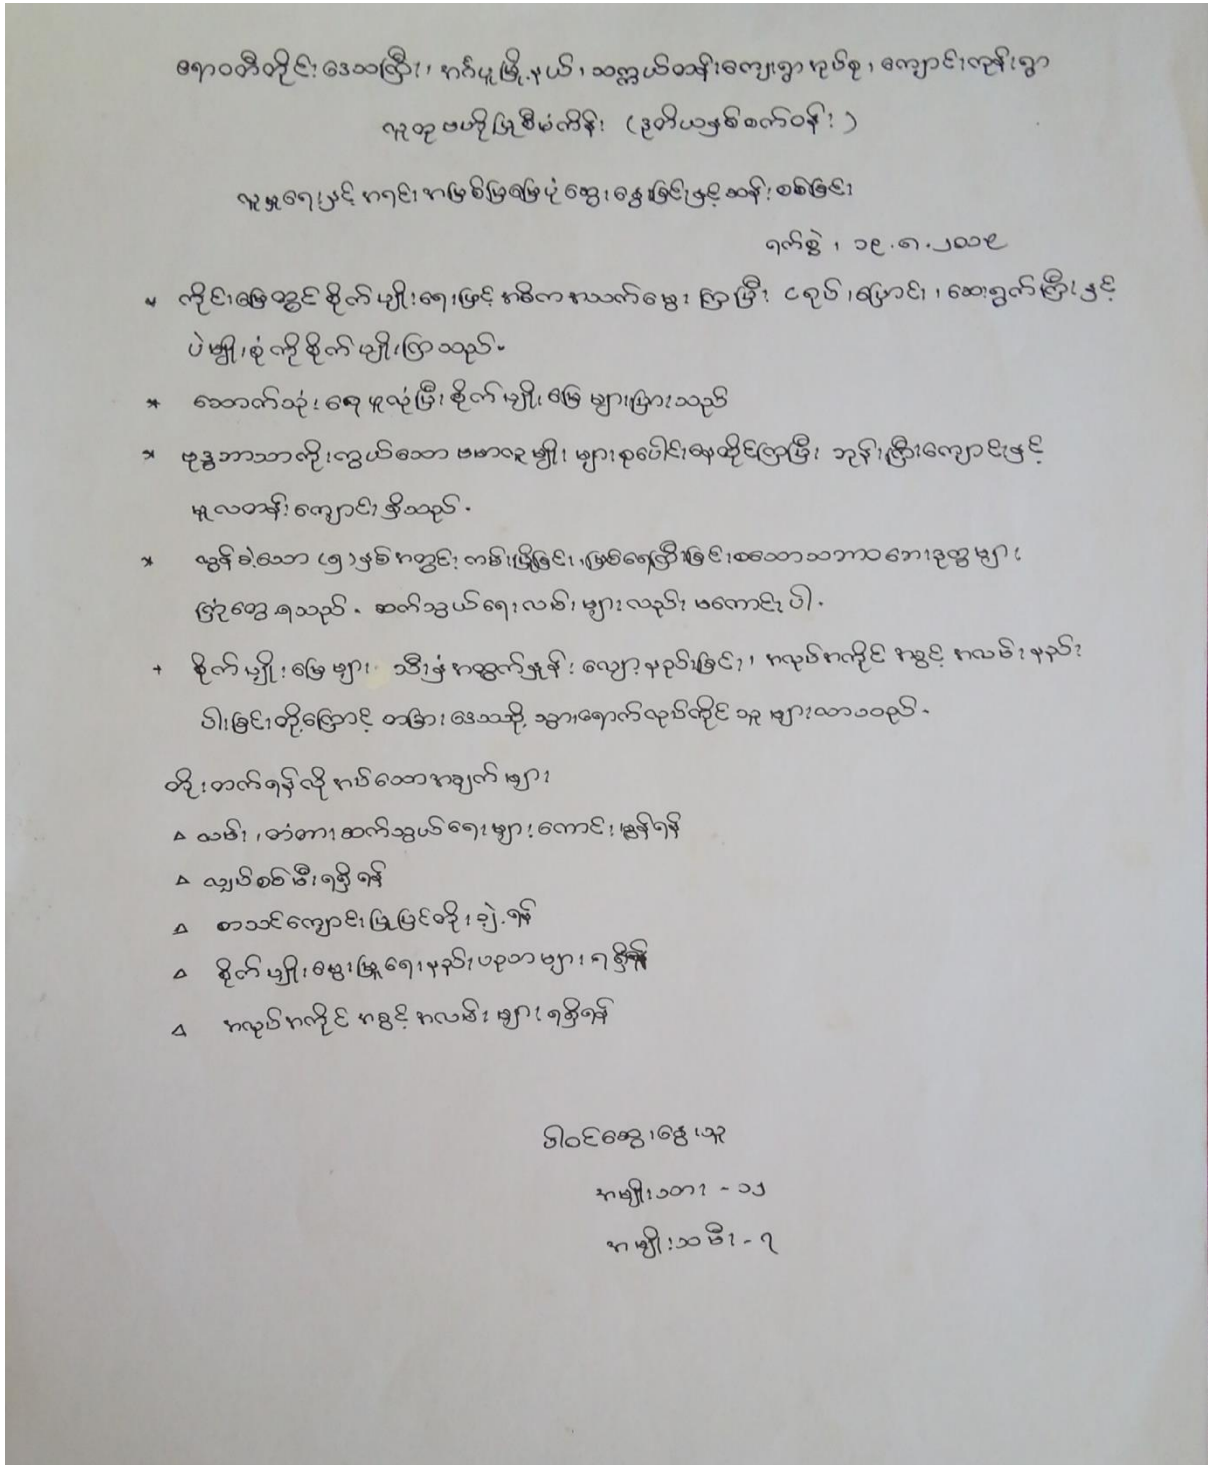 ဧရာဝတီတိုင်းဒေသကြီး၊ အင်္ဂပူမြို့နယ်၊ သက္ကယ်တန်းကျေးရွာအုပ်စု၊ ကျောင်းကုန်းရွာ
လူထုဗဟိုပြုစီမံကိန်း (ဒုတိယနှစ်စက်ဝန်း)
လူမှုရေးနှင့် အရင်းအမြစ်ပြမြေပုံဆွေးနွေးခြင်းနှင့်ဆန်းစစ်ခြင်း
ရက်စွဲ၊ ၁၉.၈.၂၀၁၅
* ကိုင်းမြေတွင် စိုက်ပျိုးရေးဖြင့် အဓိက အသက်မွေး ကြပြီး ငရုပ်၊ပြောင်း၊ဆေးရွက်ကြီးနှင့်
ပဲမျိုးစုံကိုစိုက်ပျိုးကြသည်။
* သောက်သုံးရေ ရှားပြီး စိုက်ပျိုးမြေများရှားသည်
* ဗုဒ္ဓဘာသာကိုးကွယ်သော ဗမာလူမျိုးများစုပေါင်းနေထိုင်ကြပြီး ဘုန်းကြီးကျောင်းနှင့်
မူလတန်းကျောင်းရှိသည်။
* လွန်ခဲ့သော (၅)နှစ်အတွင်း ကမ်းပြိုခြင်း၊မြစ်ရေကြီးခြင်းစသောသဘာဝဘေးဒုက္ခများ
ကြုံတွေ့ရသည်။ ဆက်သွယ်ရေးလမ်းများလည်း မကောင်းပါ။
+ စိုက်ပျိုးမြေများ သီးနှံအထွက်နှုန်း လျော့နည်းခြင်း၊ အလုပ်အကိုင် အခွင့်အလမ်းနည်း
ပါးခြင်းတို့ကြောင့် တခြားဒေသသို့ သွားရောက်လုပ်ကိုင်သူများလာသည်။
တိုးတက်ရန်လိုအပ်သောအချက်များ
△ လမ်း၊တံတားဆက်သွယ်ရေးများကောင်းမွန်ရန်
△ လျှပ်စစ်မီးရရှိရန်
△ စာသင်ကျောင်းပြုပြင်တိုးချဲ့ရန်
△ စိုက်ပျိုးမွေးမြူရေးနည်းပညာများရရှိရန်
△ အလုပ်အကိုင်အခွင့်အလမ်းများရရှိရန်
ပါဝင်ဆွေးနွေးသူ
အမျိုးသား - ၁၂
အမျိုးသမီး - ၇